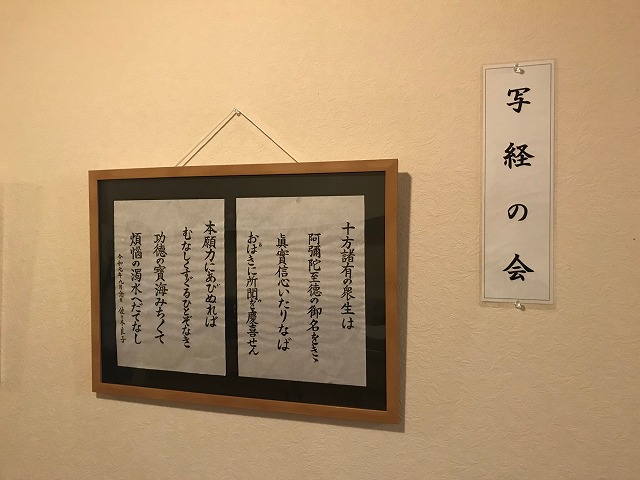 十方諸有の衆生は
阿彌陀至德の御名をきゝ
眞實信心いたりなば
おほきに所聞を慶喜せん
本願力にあひぬれば
むなしくすぐるひとぞなき
功德の寳海みちみちて
煩惱の濁水へだてなし
写経の会